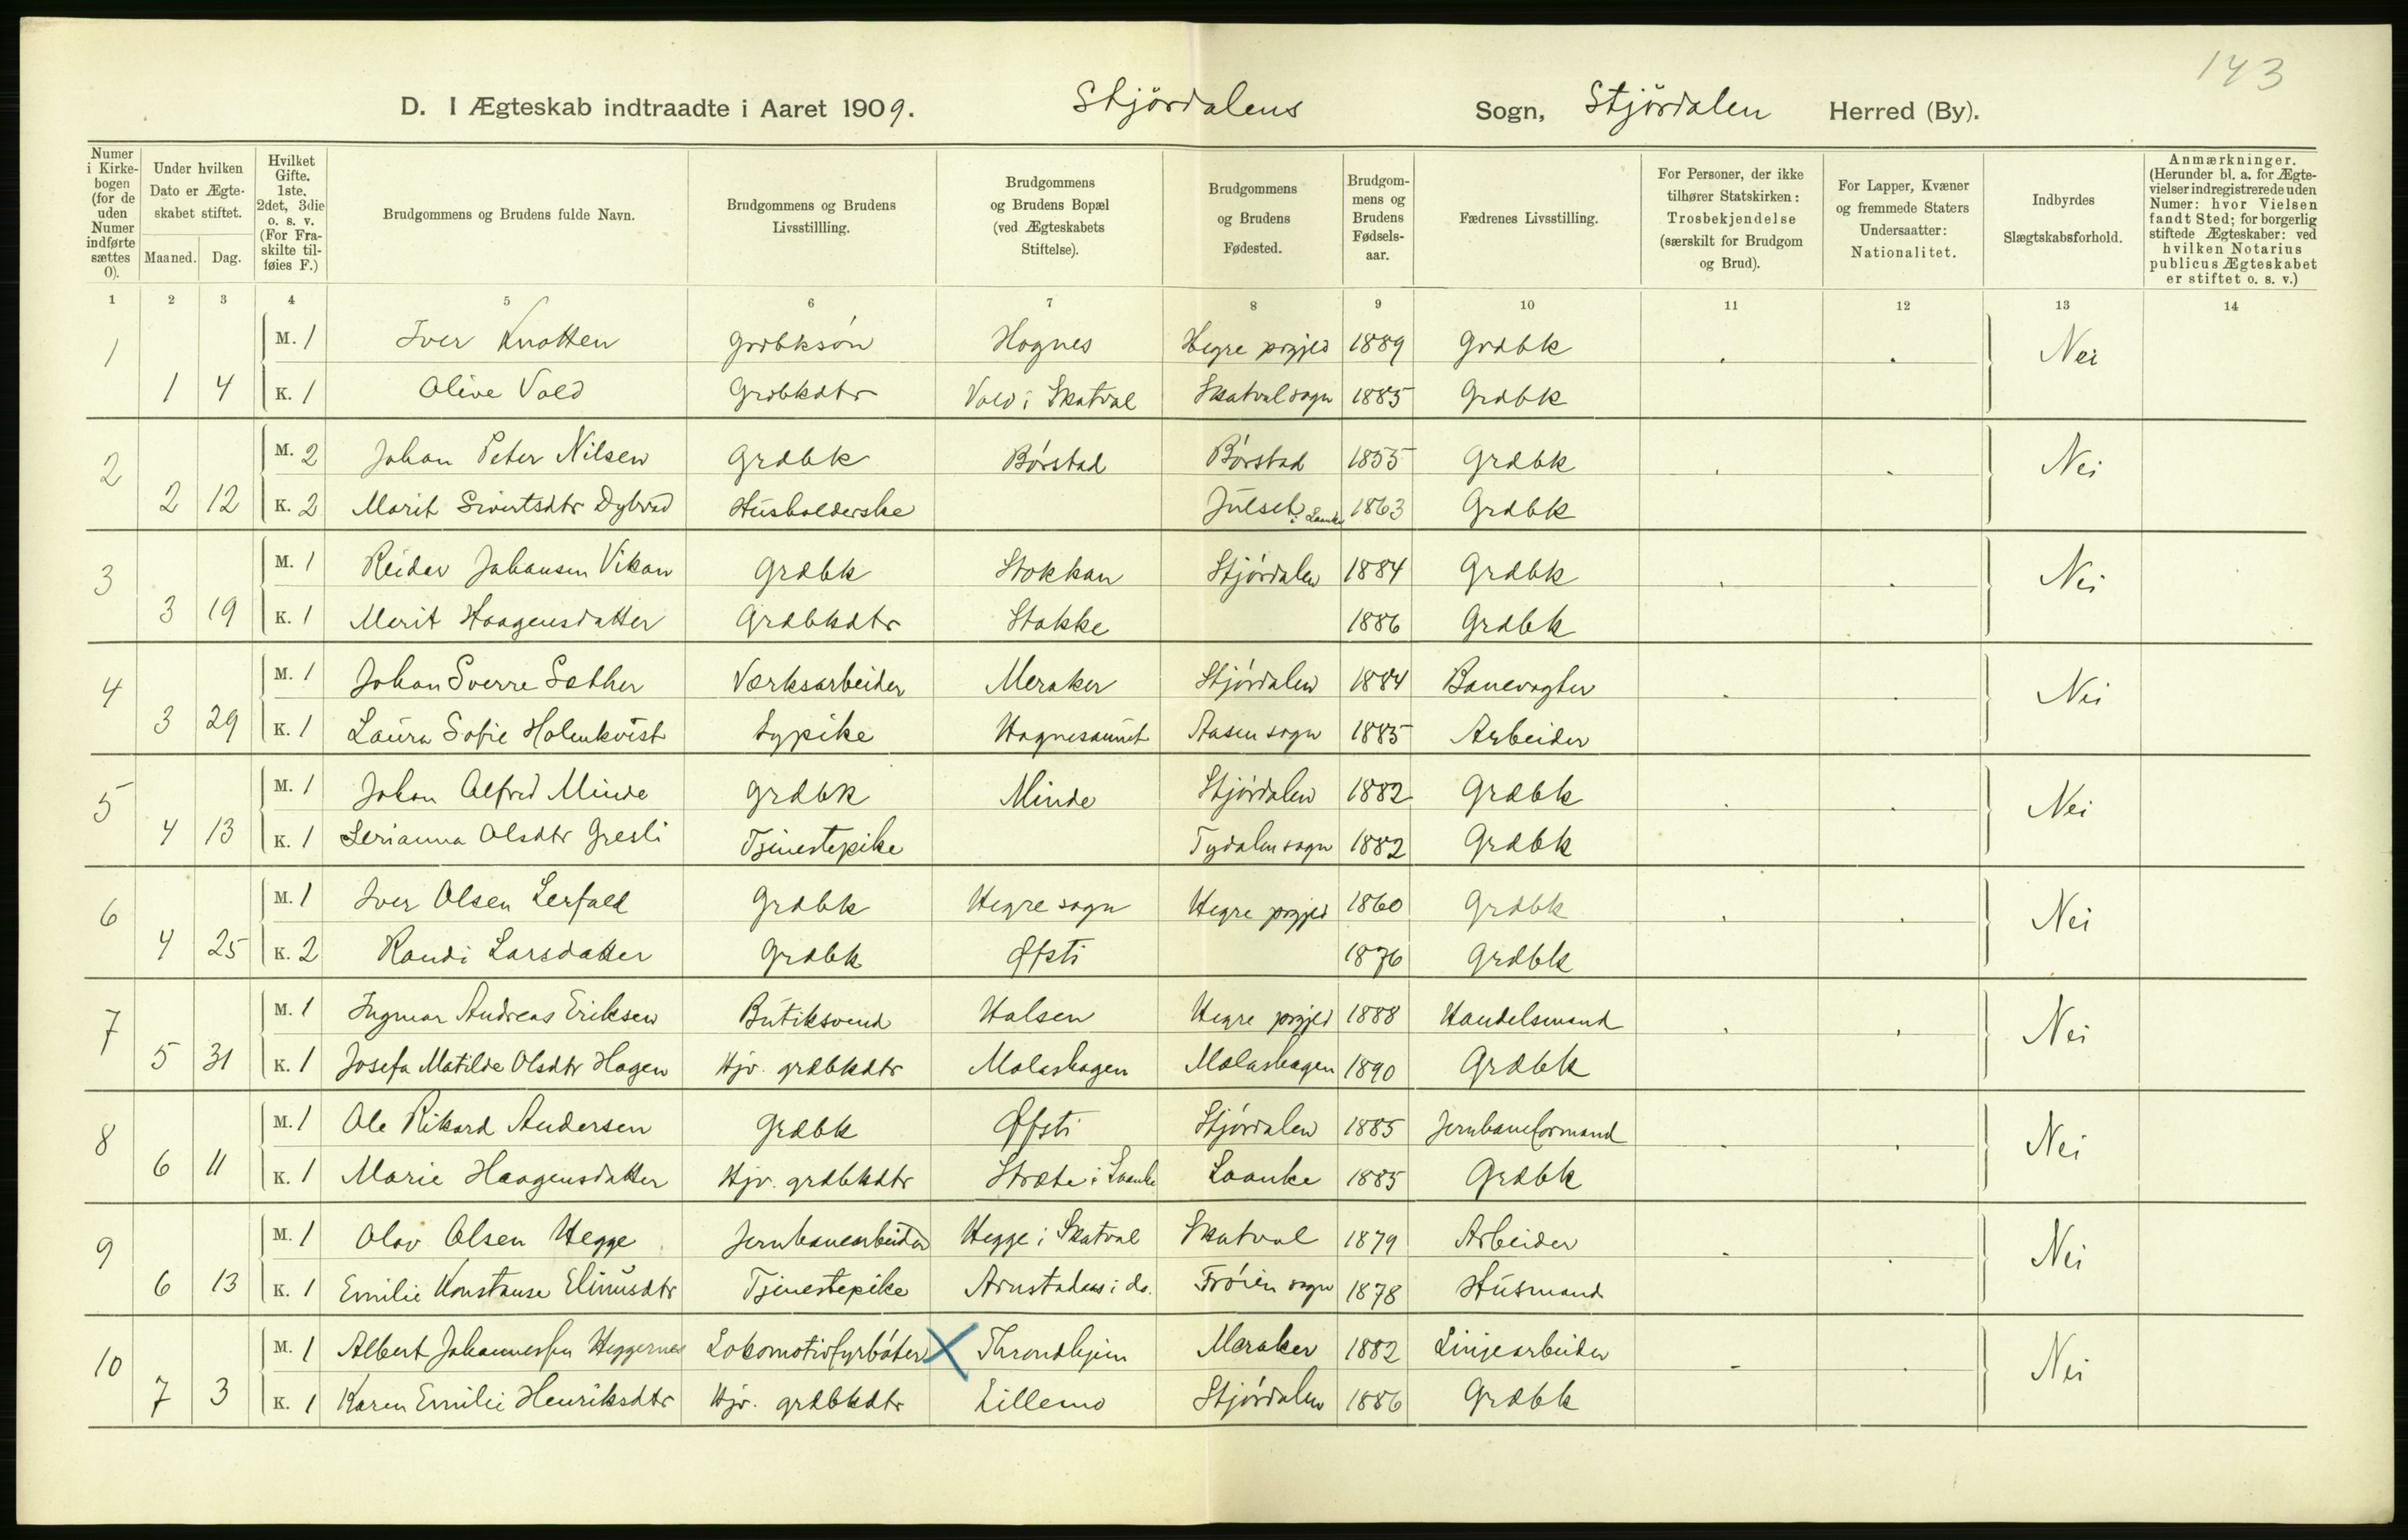 143
D. I Ægteskab indtraadte i Aaret 1909. Stjørdalens Sogn, Stjørdalen Herred (By).
Numer i Kirkebogen (for de uden Numer indførte sættes 0). | Under hvilken Dato er Ægteskabet stiftet. Maaned. Dag. | Hvilket Gifte. 1ste, 2det, 3die o. s. v. (For Fraskilte tilføies F.) | Brudgommens og Brudens fulde Navn. | Brudgommens og Brudens Livsstillling. | Brudgommens og Brudens Bopæl (ved Ægteskabets Stiftelse). | Brudgommens og Brudens Fødested. | Brudgommens og Brudens Fødselsaar. | Fædrenes Livsstilling. | For Personer, der ikke tilhører Statskirken: Trosbekjendelse (særskilt for Brudgom og Brud). | For Lapper, Kvæner og fremmede Staters Undersaatter: Nationalitet. | Indbyrdes Slægtskabsforhold. | Anmærkninger. (Herunder bl. a. for Ægtevielser indregistrerede uden Numer: hvor Vielsen fandt Sted; for borgerlig stiftede Ægteskaber: ved hvilken Notarius publicus Ægteskabet er stiftet o. s. v.)
1 2 3 4 5 6 7 8 9 10 11 12 13 14
1 M. 1 Iver Knotten grdbksøn Hognes Hegre prgjed 1889 Grdbk . . Nei
1 4 K. 1 Olive Vold Grdbkdtr Vold i Skatval Skatval sogn 1885 Grdbk
2 M. 2 Johan Peter Nilsen Grdbk Børstad Børstad 1855 Grdbk . . Nei
2 12 K. 2 Marit Sivertsdtr Dybvad Husholderske Julset i Laanke 1863 Grdbk
3 M. 1 Reidar Johansen Vikan Grdbk Stokkan Stjørdalen 1884 Grdbk . . Nei
3 19 K. 1 Merit Haagensdatter Grdbkdtr Stokke 1886 Grdbk
4 M. 1 Johan Sverre Sæther Værksarbeider Meraker Stjørdalen 1884 Banevogter . . Nei
3 29 K. 1 Laura Sofie Holmkvist Sypike Hognesaunet Aasen sogn 1885 Arbeider
5 M. 1 Johan Alfred Minde Grdbk Minde Stjørdalen 1882 Grdbk . . Nei
4 13 K. 1 Serianna Olsdtr Gresli Tjenestepike Tydalen sogn 1882 Grdbk
6 M. 1 Iver Olsen Lerfald Grdbk Hegre sogn Hegre prgjed 1860 Grdbk . . Nei
4 25 K. 2 Randi Larsdatter Grdbk Øfsti 1876 Grdbk
7 M. 1 Ingmar Andreas Eriksen Butiksvend Halsen Hegre prgjed 1888 Handelsmand . . Nei
5 31 K. 1 Josefa Matilde Olsdtr Hagen Hjv. grdbkdtr Molashagen Molashagen 1890 Grdbk
8 M. 1 Ole Rikard Andersen Grdbk Øfsti Stjørdalen 1885 Jernbaneformand . . Nei
6 11 K. 1 Marie Haagensdatter Hjv. grdbkdtr Stræte i Laanke Laanke 1885 Grdbk
9 M. 1 Olav Olsen Hegge Jernbanearbeider Hegge i Skatval Skatval 1879 Arbeider . . Nei
6 13 K. 1 Emilie Konstanse Elinusdtr Tjenestepike i do. Frøien sogn 1878 Husmand
10 M. 1 Albert Johannessen Heggernes Lokomotivfyrbøter X Throndhjem Meraker 1882 Linjearbeider - . Nei
7 3 K. 1 Karen Emilie Henriksdtr Hjv. grdbkdtr Lillemo Stjørdalen 1886 Grdbk